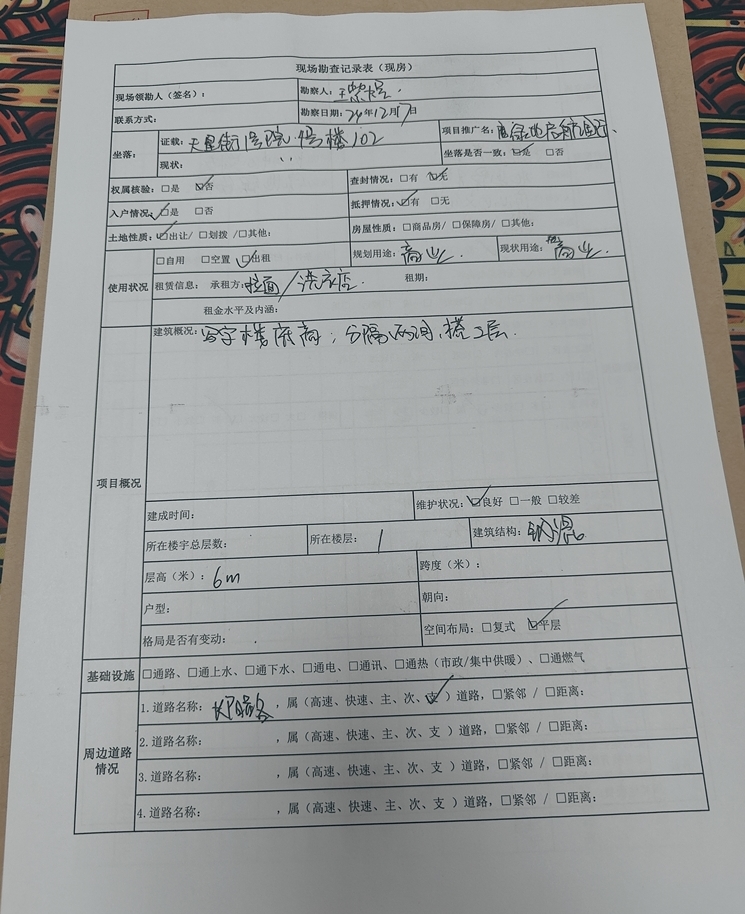 现场勘查记录表（现房）
现场领勘人（签名）： 勘察人：
联系方式： 勘察日期：24年12月17日
坐落： 证载：天星街1号院 号楼102 项目推广名：
现状： 坐落是否一致：☑是 □否
权属核验：□是 ☑否 查封情况：□有 ☑无
入户情况：☑是 □否 抵押情况：☑有 □无
土地性质：☑出让/ □划拨 /□其他： 房屋性质：□商品房/ □保障房/ □其他：
使用状况 □自用 □空置 ☑出租 规划用途：商业 现状用途：商业
租赁信息： 承租方：拉面/洗衣店 租期：
租金水平及内涵：
项目概况 建筑概况：写字楼底商；分隔两间，搭2层．
建成时间： 维护状况：☑良好 □一般 □较差
所在楼宇总层数： 所在楼层：1 建筑结构：钢混
层高（米）：6m 跨度（米）：
户型： 朝向：
格局是否有变动： 空间布局：□复式 ☑平层
基础设施 □通路、□通上水、□通下水、□通电、□通讯、□通热（市政/集中供暖）、□通燃气
周边道路情况 1.道路名称： ，属（高速、快速、主、次、支✓）道路，□紧邻 / □距离：
2.道路名称： ，属（高速、快速、主、次、支 ）道路，□紧邻 / □距离：
3.道路名称： ，属（高速、快速、主、次、支 ）道路，□紧邻 / □距离：
4.道路名称： ，属（高速、快速、主、次、支 ）道路，□紧邻 / □距离：